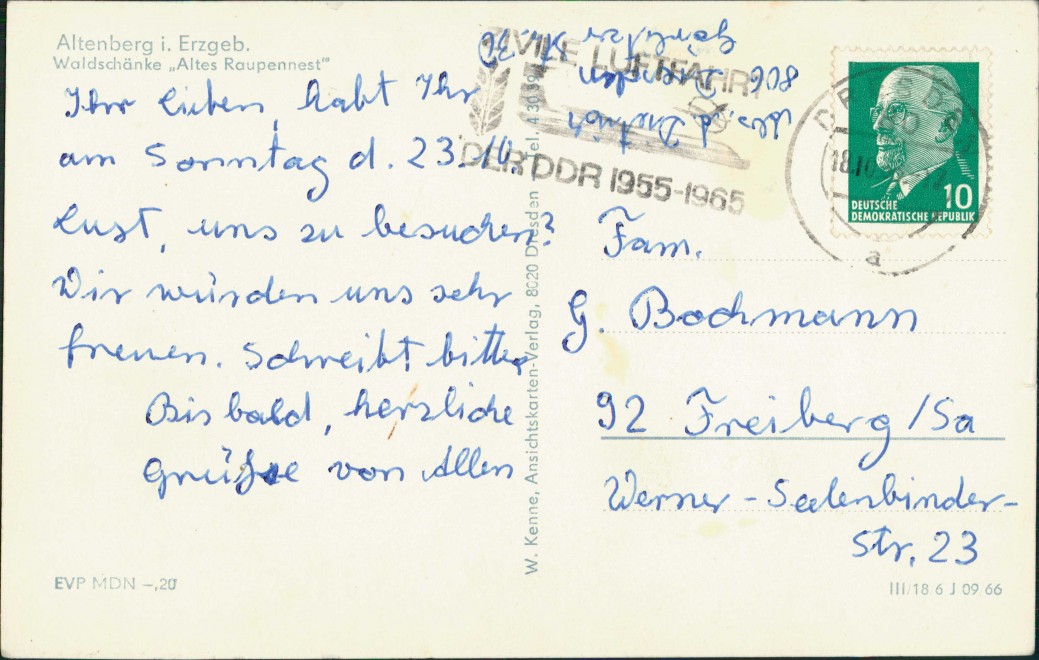 Altenberg i. Erzgeb.
Waldschänke „Altes Raupennest"
Ihr lieben, habt Ihr
am Sonntag d. 23.10.
Lust, uns zu besuchen?
Wir würden uns sehr
freuen. Schreibt bitte,
Bis bald, herzliche
Grüße von Allen
EVP MDN –,20
W. Kenne, Ansichtskarten-Verlag, 8020 Dresden Tel. 43039
806 Dresden
Str. 32
ZIVILE LUFTFAHRT
DER DDR 1955-1965
DRESDEN
18.10.
a
10
DEUTSCHE
DEMOKRATISCHE REPUBLIK
Fam.
G. Bochmann
92 Freiberg/Sa
Werner-Seelenbinder-
Str. 23
III/18 6 J 09 66